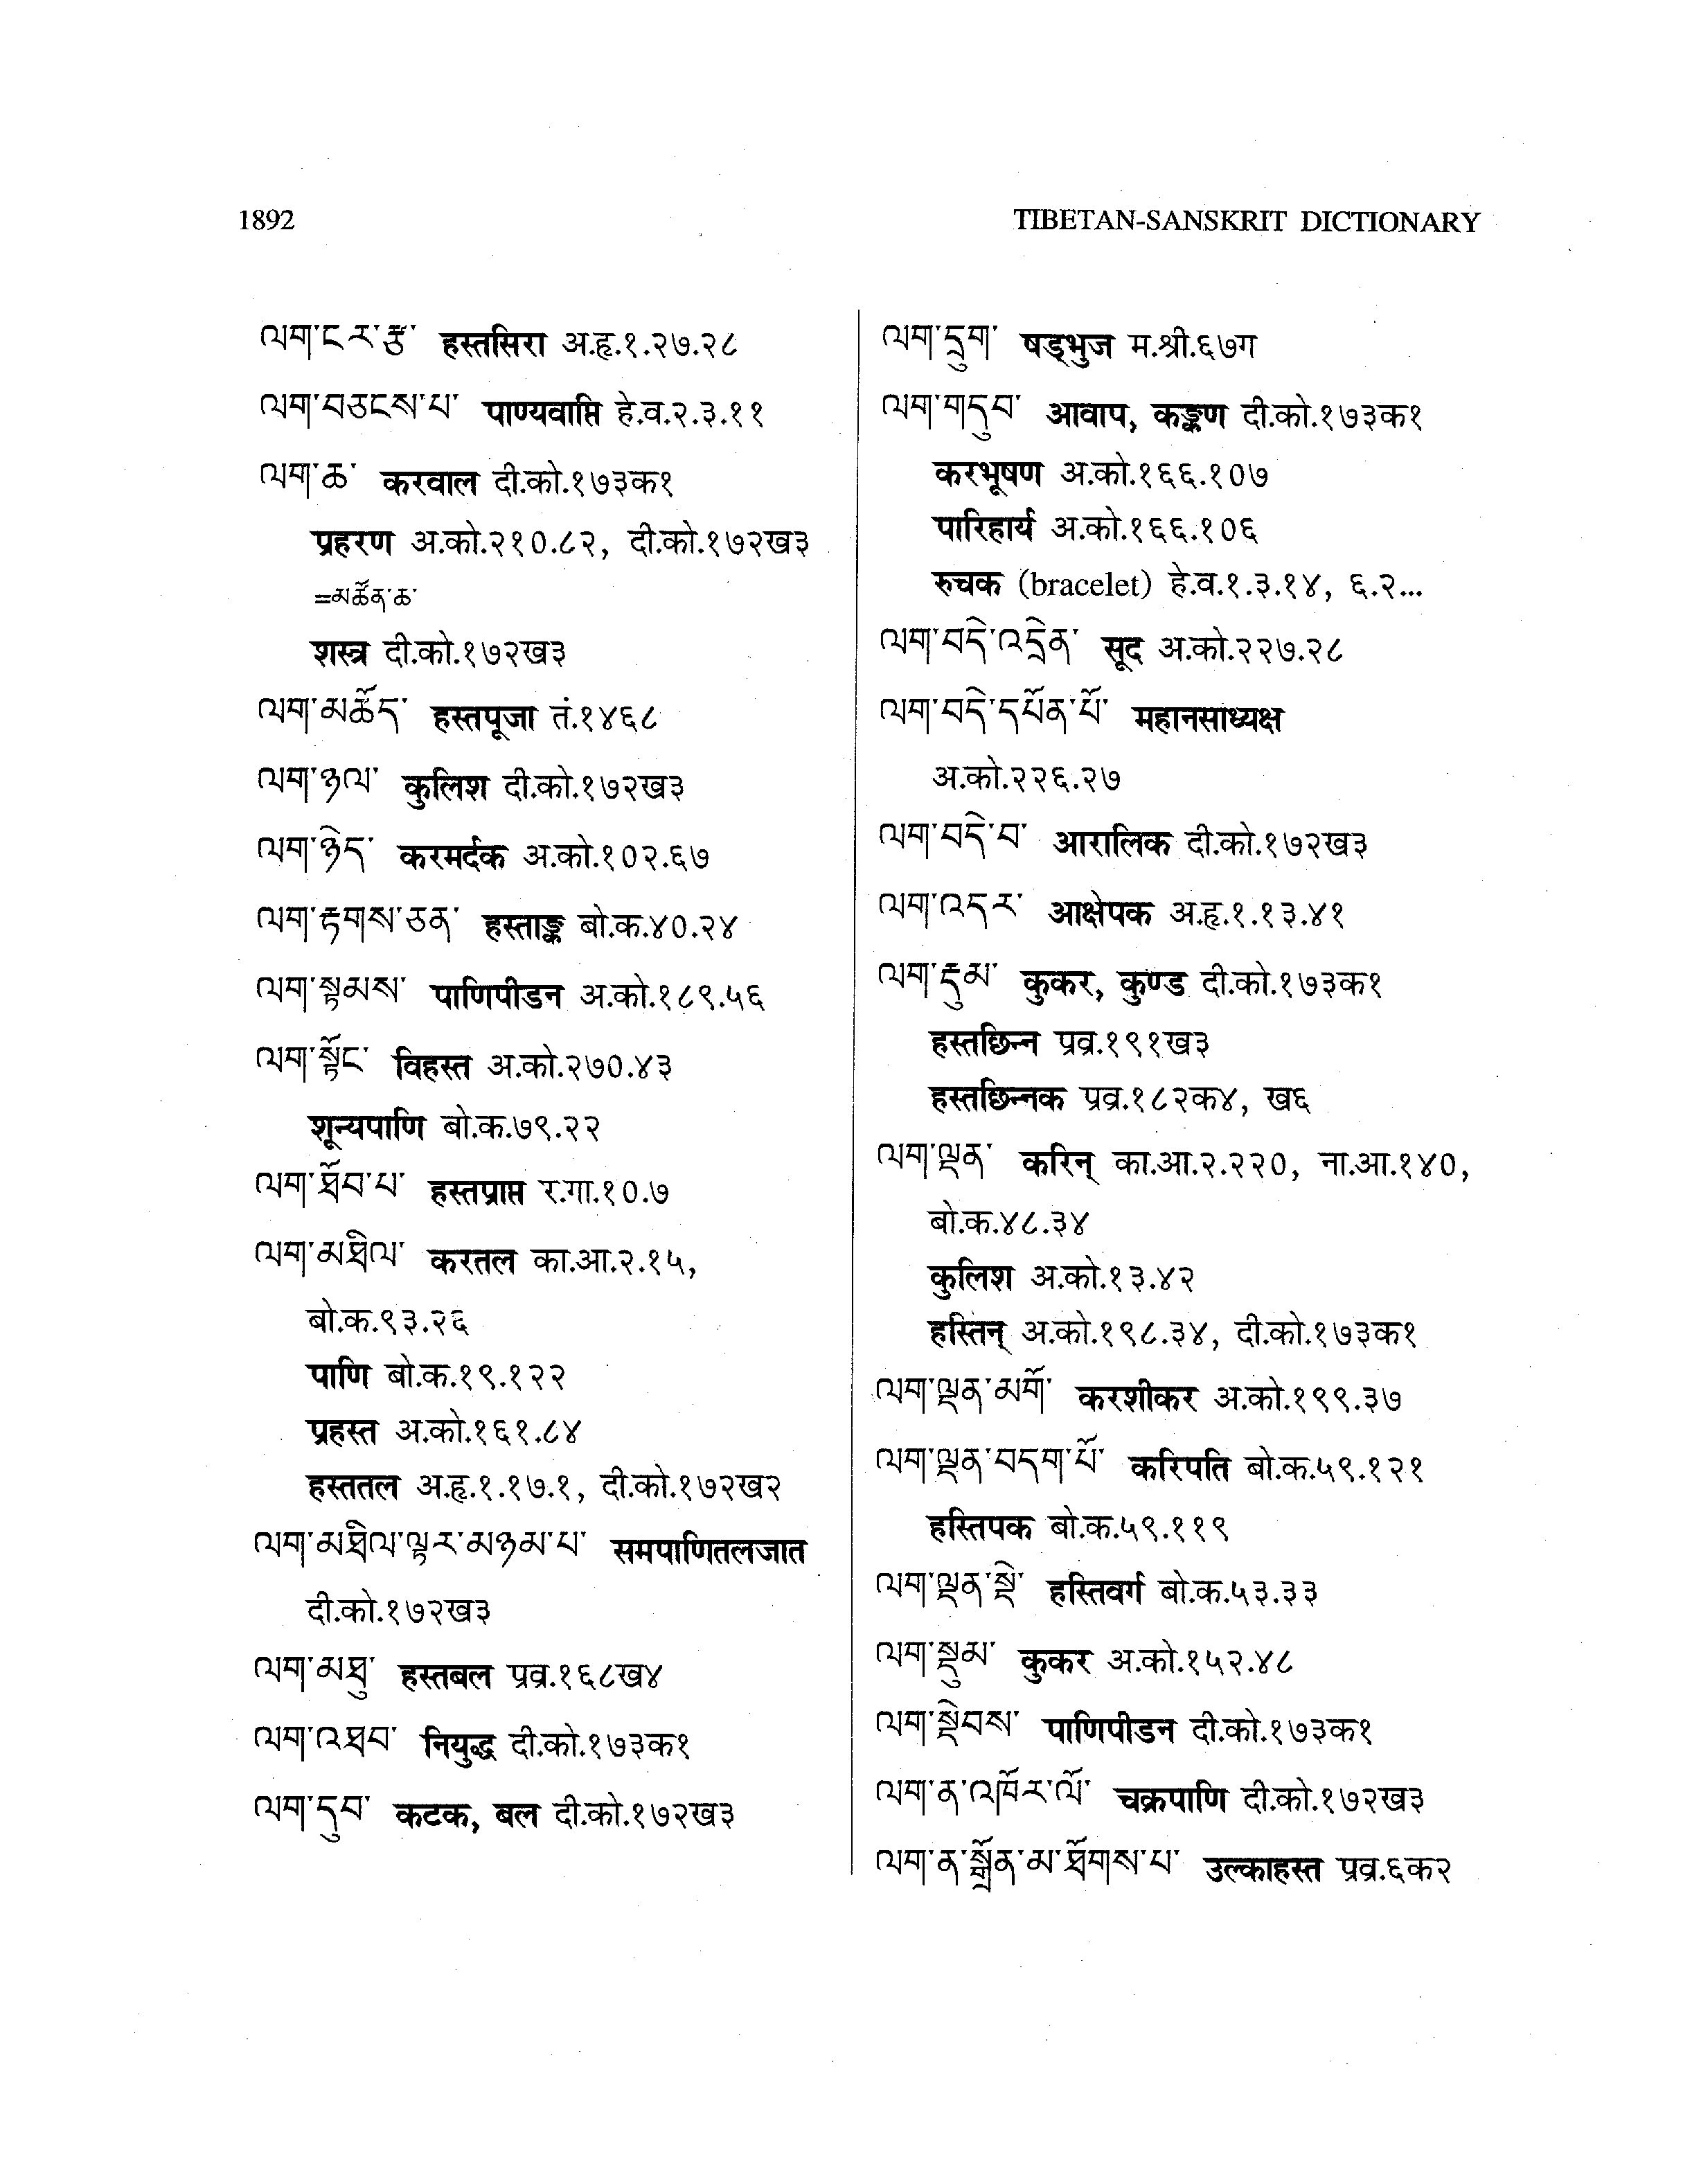 1892
TIBETAN-SANSKRIT DICTIONARY
ལག་ངར་རྩ་ हस्तसिरा अ.हृ.१.२७.२८
ལག་བཅངས་པ་ पाण्यवाप्ति हे.व.२.३.११
ལག་ཆ་ करवाल दी.को.१७३क१
प्रहरण अ.को.२१०.८२, दी.को.१७२ख३
=མཚོན་ཆ་
शस्त्र दी.को.१७२ख३
ལག་མཆོད་ हस्तपूजा तं.१४६८
ལག་ཉལ་ कुलिश दी.को.१७२ख३
ལག་ཉེད་ करमर्दक अ.को.१०२.६७
ལག་རྟགས་ཅན་ हस्ताङ्क बो.क.४०.२४
ལག་སྟམས་ पाणिपीडन अ.को.१८९.५६
ལག་སྟོང་ विहस्त अ.को.२७०.४३
शून्यपाणि बो.क.७९.२२
ལག་ཐོབ་པ་ हस्तप्राप्त र.गा.१०.७
ལག་མཐིལ་ करतल का.आ.२.१५,
बो.क.९३.२६
पाणि बो.क.१९.१२२
प्रहस्त अ.को.१६१.८४
हस्ततल अ.हृ.१.१७.१, दी.को.१७२ख२
ལག་མཐིལ་ལྟར་མཉམ་པ་ समपाणितलजात
दी.को.१७२ख३
ལག་མཐུ་ हस्तबल प्रव्र.१६८ख४
ལག་འཐབ་ नियुद्ध दी.को.१७३क१
ལག་དུབ་ कटक, बल दी.को.१७२ख३
ལག་དྲུག་ षड्भुज म.श्री.६७ग
ལག་གདུབ་ आवाप, कङ्कण दी.को.१७३क१
करभूषण अ.को.१६६.१०७
पारिहार्य अ.को.१६६.१०६
रुचक (bracelet) हे.व.१.३.१४, ६.२...
ལག་བདེ་འདྲེན་ सूद अ.को.२२७.२८
ལག་བདེ་དཔོན་པོ་ महानसाध्यक्ष
अ.को.२२६.२७
ལག་བདེ་བ་ आरालिक दी.को.१७२ख३
ལག་འདར་ आक्षेपक अ.हृ.१.१३.४१
ལག་རྡུམ་ कुकर, कुण्ड दी.को.१७३क१
हस्तछिन्न प्रव्र.१९१ख३
हस्तछिन्नक प्रव्र.१८२क४, ख६
ལག་ལྡན་ करिन् का.आ.२.२२०, ना.आ.१४०,
बो.क.४८.३४
कुलिश अ.को.१३.४२
हस्तिन् अ.को.१९८.३४, दी.को.१७३क१
ལག་ལྡན་མགོ་ करशीकर अ.को.१९९.३७
ལག་ལྡན་བདག་པོ་ करिपति बो.क.५९.१२१
हस्तिपक बो.क.५९.११९
ལག་ལྡན་སྡེ་ हस्तिवर्ग बो.क.५३.३३
ལག་སྡུམ་ कुकर अ.को.१५२.४८
ལག་སྡེབས་ पाणिपीडन दी.को.१७३क१
ལག་ན་འཁོར་ལོ་ चक्रपाणि दी.को.१७२ख३
ལག་ན་སྒྲོན་མ་ཐོགས་པ་ उल्काहस्त प्रव्र.६क२